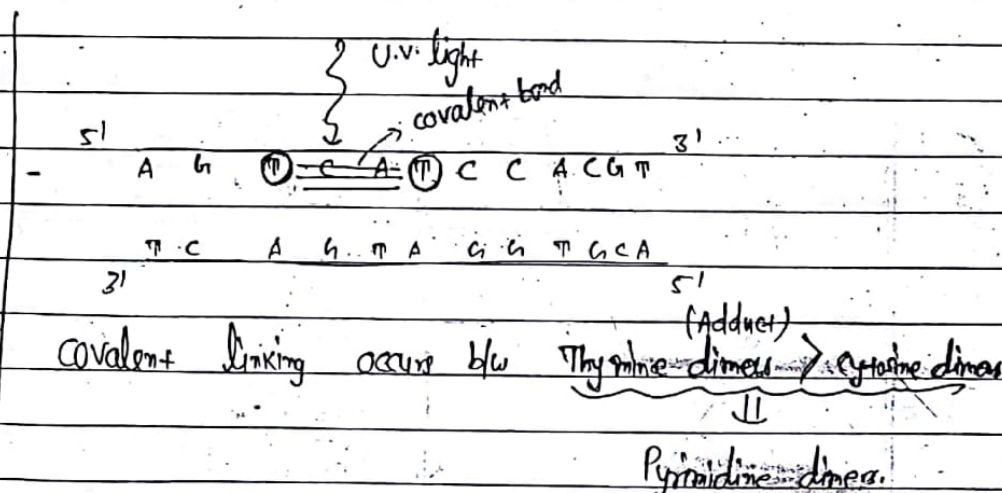 U.V. light
covalent bond
5' 3'
- A G T C A T C C A C G T
T C A G T A G G T G C A
3' 5'
(Adduct)
Covalent linking occurs b/w Thymine dimers > cytosine dimers
⇓
Pyrimidine dimers.